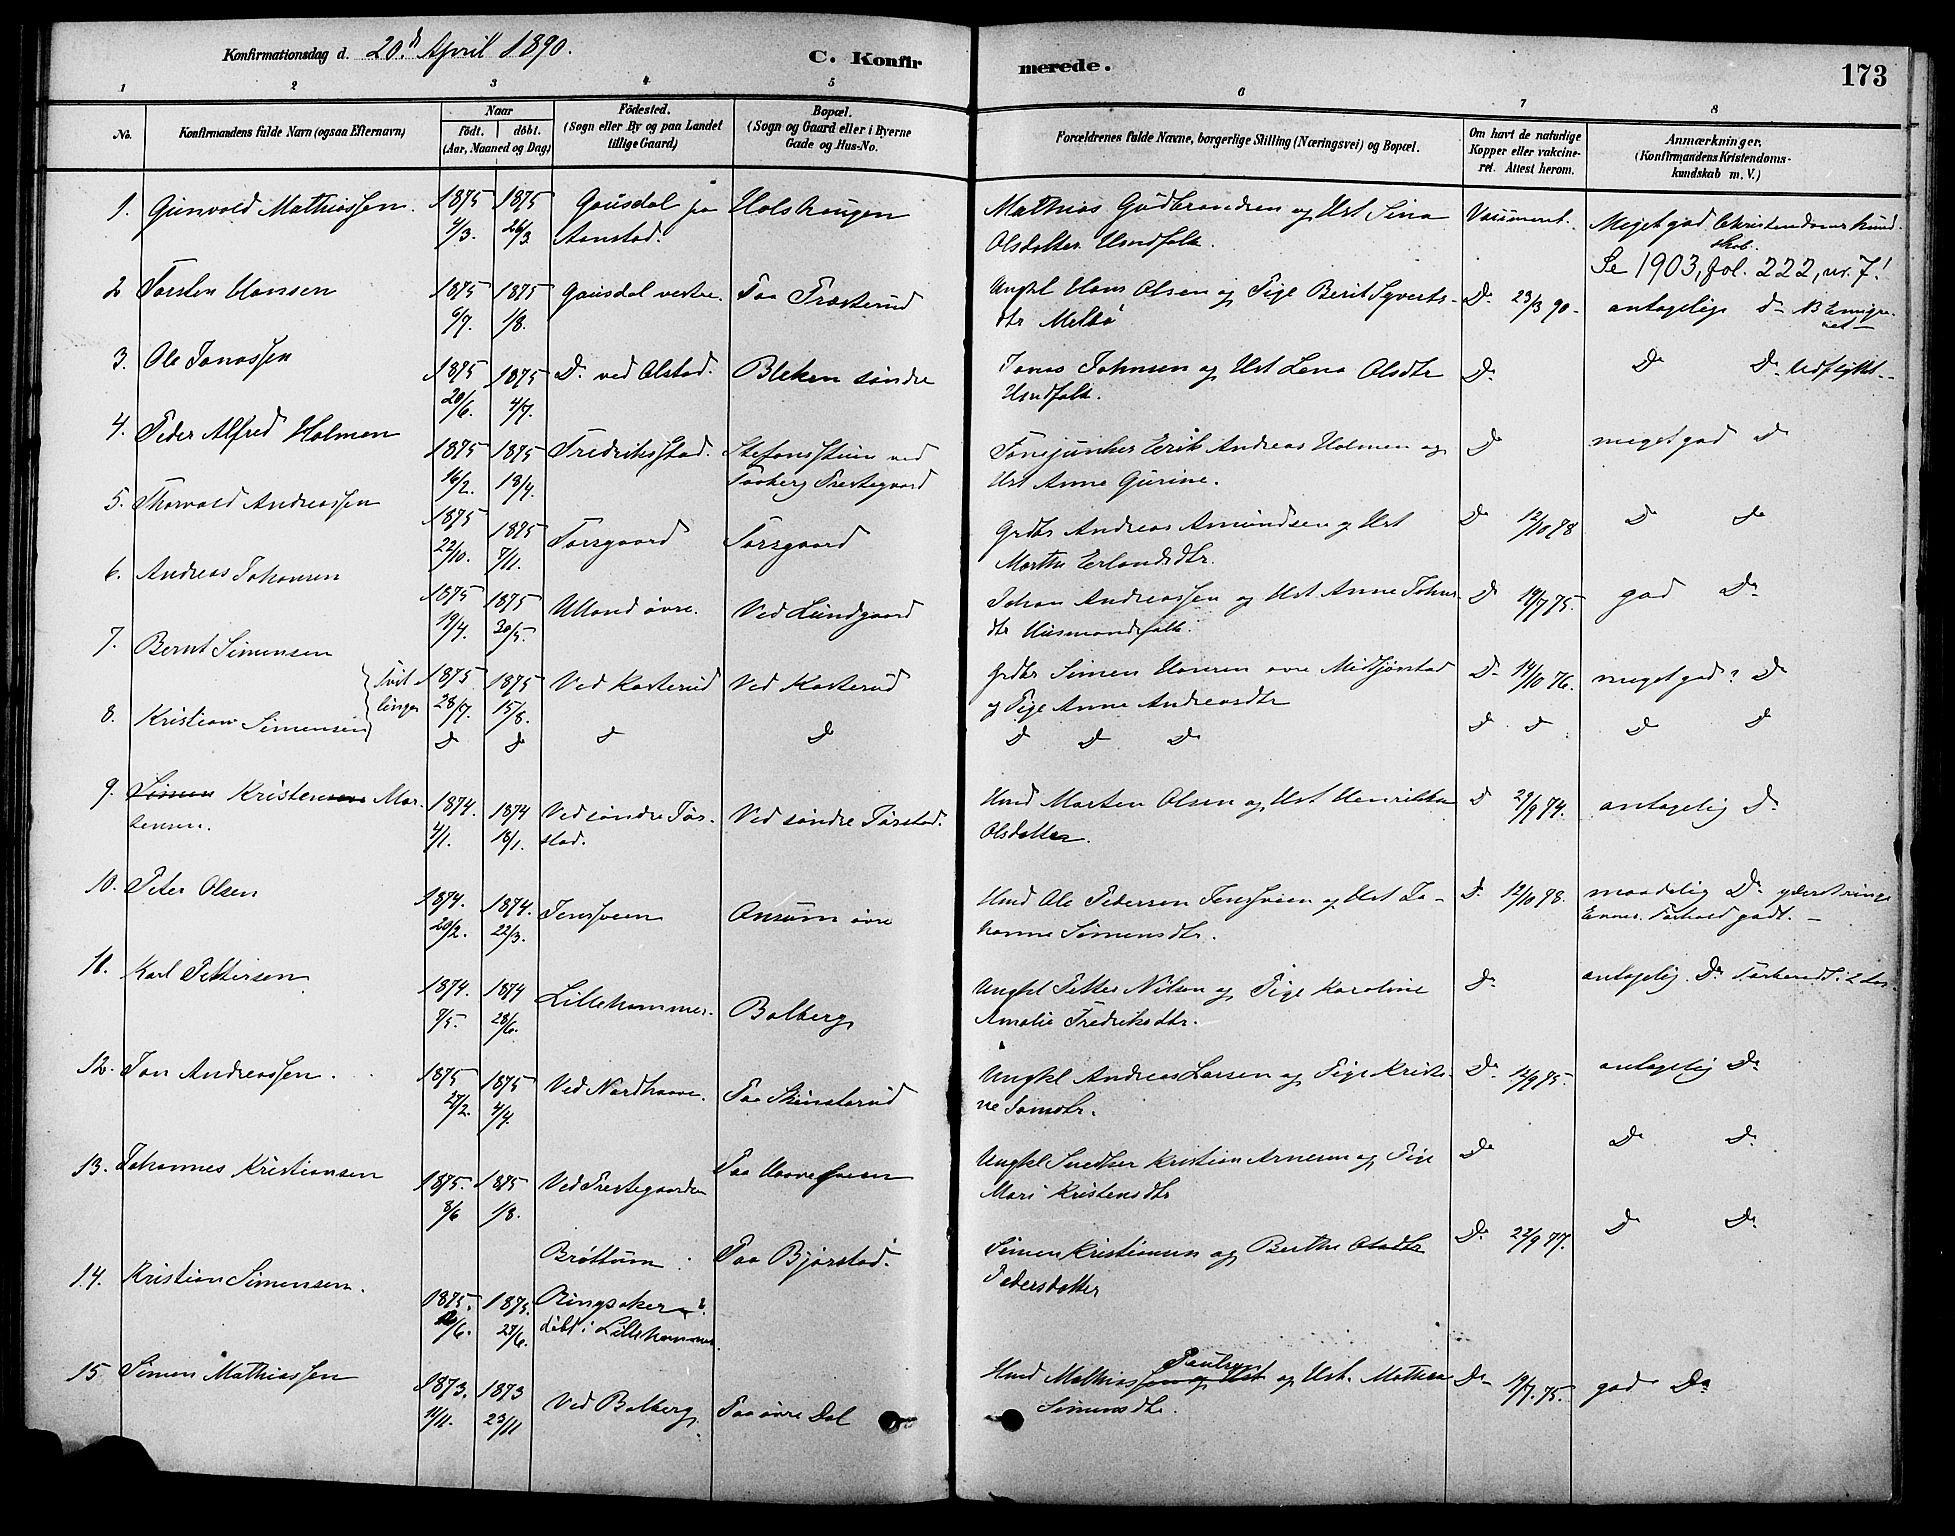 Konfirmationsdag d. 20.d April 1890.
C. Konfirmerede.
173
1 2 3 4 5 6 7 8
No.
Konfirmandens fulde Navn (ogsaa Efternavn)
Naar
födt. döbt.
(Aar, Maaned og Dag)
Födested.
(Sogn eller By og paa Landet
tillige Gaard)
Bopæl.
(Sogn og Gaard eller i Byerne
Gade og Hus-No.
Forældrenes fulde Navne, borgerlige Stilling (Næringsvei) og Bopæl.
Om havt de naturlige
Kopper eller vakcine-
ret. Attest herom.
Anmærkninger.
(Konfirmandens Kristendoms-
kundskab m. V.)
1. Gunvald Mathiassen. 1875 4/3. 1875 26/3. Gausdal paa
Aanstad. Holshaugen
Mathias Gudbrandsen og Hst Sina
Olsdatter Husmdfolk. Vaccineret. Meget god Christendomskund
skab.
Se 1903, fol. 222, nr. 7!
2 Torsten Hansen 1875 6/7. 1875 1/8. Gausdal vestre. Paa Fræsterud
Ungkl Hans Olsen og Pige Berit Syverts-
dtr Melbö Do 23/3 90. antagelig Do NB Emigre-
ret
3. Ole Jonassen 1875 20/6. 1875 4/7. Do. ved Olstad. Bleken søndre
Jonas Johnsen og Hst Lena Olsdtr
Husmdfolk. Do Do Do Udflyttet
4. Peder Alfred Holmen 1875 16/2. 1875 18/4. Fredriksstad. Stefansstuen ved
Faaberg Prestegaard
Fanejunker Erik Andreas Holmen og
Hst Anne Gurine. Do meget god Do
5. Thorvald Andreassen 1875 22/10. 1875 7/11. Forsgaard Forsgaard
Grdbr Andreas Amundsen og Hst
Marthe Erlandsdtr. Do 12/10 78 Do Do
6. Andreas Johansen 1875 19/4. 1875 30/5. Ulland övre. Ved Lundgaard
Johan Andreassen og Hst Anne Johns-
dtr Husmandsfolk. Do 19/7 75. god Do
7. Bernt Simensen } Tvil-
linger 1875 28/7. 1875 15/8. Ved Kasterud Ved Kasterud
Grdbr Simen Hansen övre Midtjønstad
og Pige Anne Andreasdtr Do 14/10 76. meget god? Do
8. Kristian Simensen Do Do Do Do
Do Do Do Do Do Do Do
9. Simen Kristensen Mar-
tensen. 1874 4/1. 1874 18/1. Ved söndre Jör-
stad. Ved söndre Jörstad.
Hmd Morten Olsen og Hst Henrikke
Olsdatter. Do 29/9 74. antagelig Do
10. Peter Olsen 1874. 20/2. 1874. 22/3. Jensveen Onsum övre
Hmd Ole Pedersen Jensveen og Hst Jo-
hanne Simensdtr. Do 12/10 78. maadelig Do yderst ringe
Evner. Forhold godt.
11. Karl Pettersen 1874. 7/5. 1874 28/6. Lillehammer. Balberg
Ungkl Petter Nilsen og Pige Karoline
Amalie Fredriksdtr. Do antagelig. Do Forberedt i 2
12. Jon Andreassen. 1875 27/2. 1875 4/4. Ved Nordhaave. Paa Skinstarud
Ungkl Andreas Larsen og Pige Kristi-
ne Jonsdtr. Do 12/9 75. antagelig Do
13. Johannes Kristiansen 1875. 8/6 1875 1/8. Ved Prestegaarden Paa Haavesveen
Ungkl Snedker Kristian Arnesen og Pige
Mari Kristensdtr Do Do Do
14. Kristian Simensen. 1875. /6. 1875. 27/6. Bröttum
Ringsaker
döbt i Lillehammer. Paa Bjørstad.
Simen Kristiansen og Berthe Olsdtr
Pedersdatter Do 22/9 77. Do Do
15 Simen Mathiassen 1873. 11/11. 1873 23/11 Ved Balberg Paa övre Dal
Hmd Mathias Paulsen og Hst. Mathea
Simensdtr. Do 19/7. 75. god Do